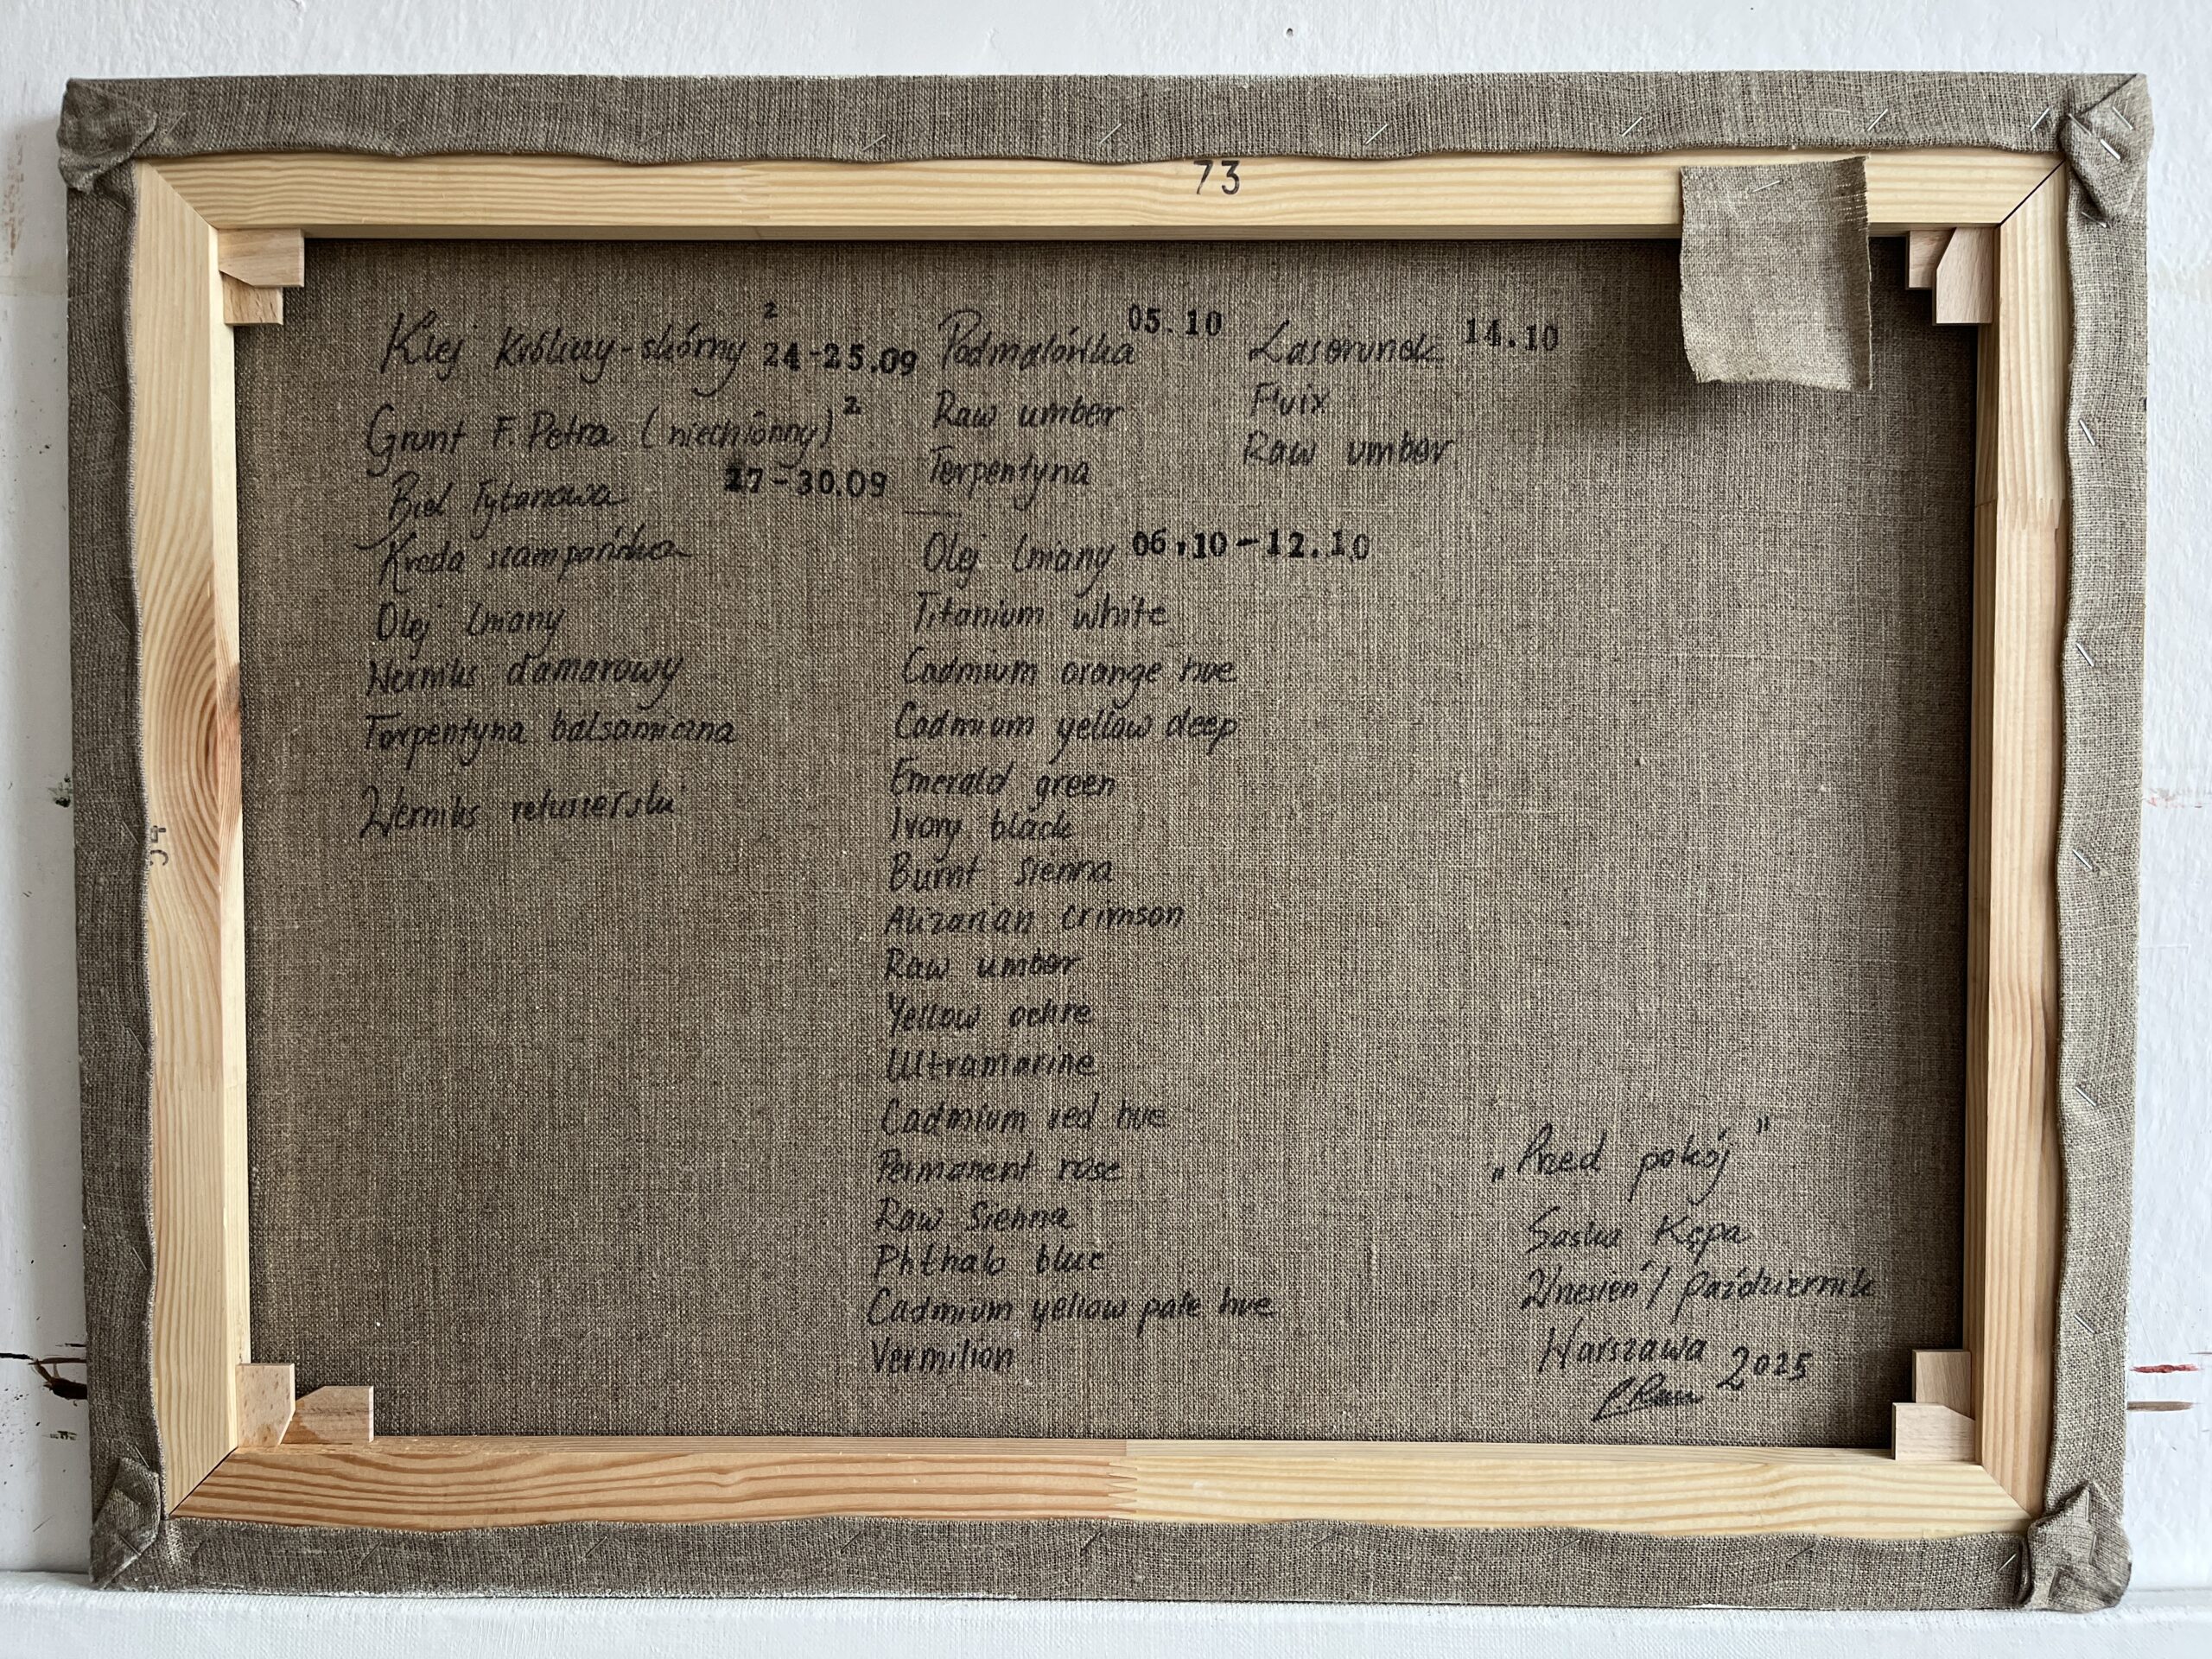 73
Klej króliczy-skórny ² 24-25.09
Grunt F. Petra (niechłonny) ²
27-30.09
Biel Tytanowa
Kreda szampańska
Olej lniany
Werniks damarowy
Terpentyna balsamiczna
Werniks retuszerski
Podmalówka 05.10
Raw umber
Terpentyna
Olej lniany 06.10-12.10
Titanium white
Cadmium orange hue
Cadmium yellow deep
Emerald green
Ivory black
Burnt sienna
Alizarian crimson
Raw umber
Yellow ochre
Ultramarine
Cadmium red hue
Permanent rose
Raw Sienna
Phthalo blue
Cadmium yellow pale hue
Vermilion
Laserunek 14.10
Fluix
Raw umber
„Przed pokój"
Saska Kępa
Wrzesień / październik
Warszawa 2025